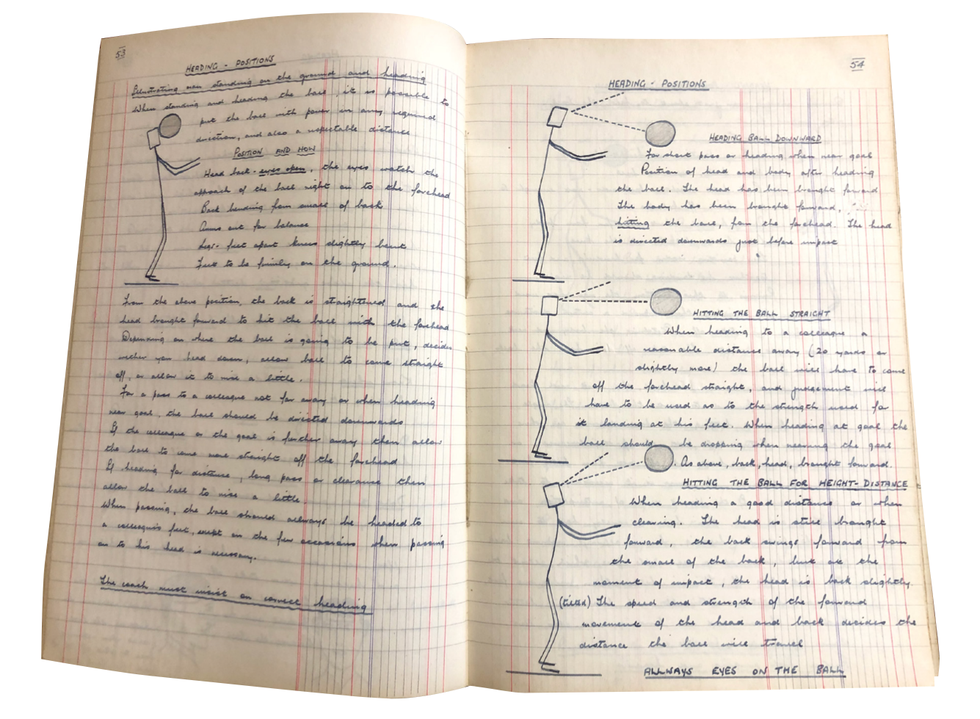 53
HEADING - POSITIONS
Illustrating man standing on the ground and heading
When standing and heading the ball, it is possible to
put the ball with power in any required
direction, and also a respectable distance
POSITION AND HOW
Head back. eyes open, the eyes watch the
approach of the ball right on to the forehead
Back bending from small of back
Arms out for balance
Legs - feet apart knees slightly bent
Feet to be firmly on the ground.
From the above position, the back is straightened and the
head brought forward to hit the ball with the forehead
Depending on where the ball is going to be put, decides
wether you head down, allow ball to come straight
off, or allow it to rise a little.
For a pass to a colleague not far away or when heading
near goal, the ball should be directed downwards
If the colleague or the goal is further away then allow
the ball to come more straight off the forehead
If heading for distance, long pass or clearance then
allow the ball to rise a little
When passing, the ball should allways be headed to
a colleagues feet, except on the few occassions when passing
on to his head is necessary.
The coach must insist on correct heading
54
HEADING - POSITIONS
HEADING BALL DOWNWARD
For short pass or heading when near goal
Position of head and body after heading
the ball. The head has been brought forward
The body has been brought forward,
hitting the ball, from the forehead. The head
is directed downwards just before impact
HITTING THE BALL STRAIGHT
When heading to a colleague a
reasonable distance away (20 yards or
slightly more) the ball will have to come
off the forehead straight, and judgement will
have to be used as to the strength used for
it landing at his feet. When heading at goal the
ball should be dropping when nearing the goal
As above, back, head, brought forward.
HITTING THE BALL FOR HEIGHT-DISTANCE
When heading a good distance or when
clearing. The head is still brought
forward, the back swings forward from
the small of the back, but at the
moment of impact, the head is back slightly.
(tilted) The speed and strength of the forward
movement of the head and back decides the
distance the ball will travel
ALLWAYS EYES ON THE BALL